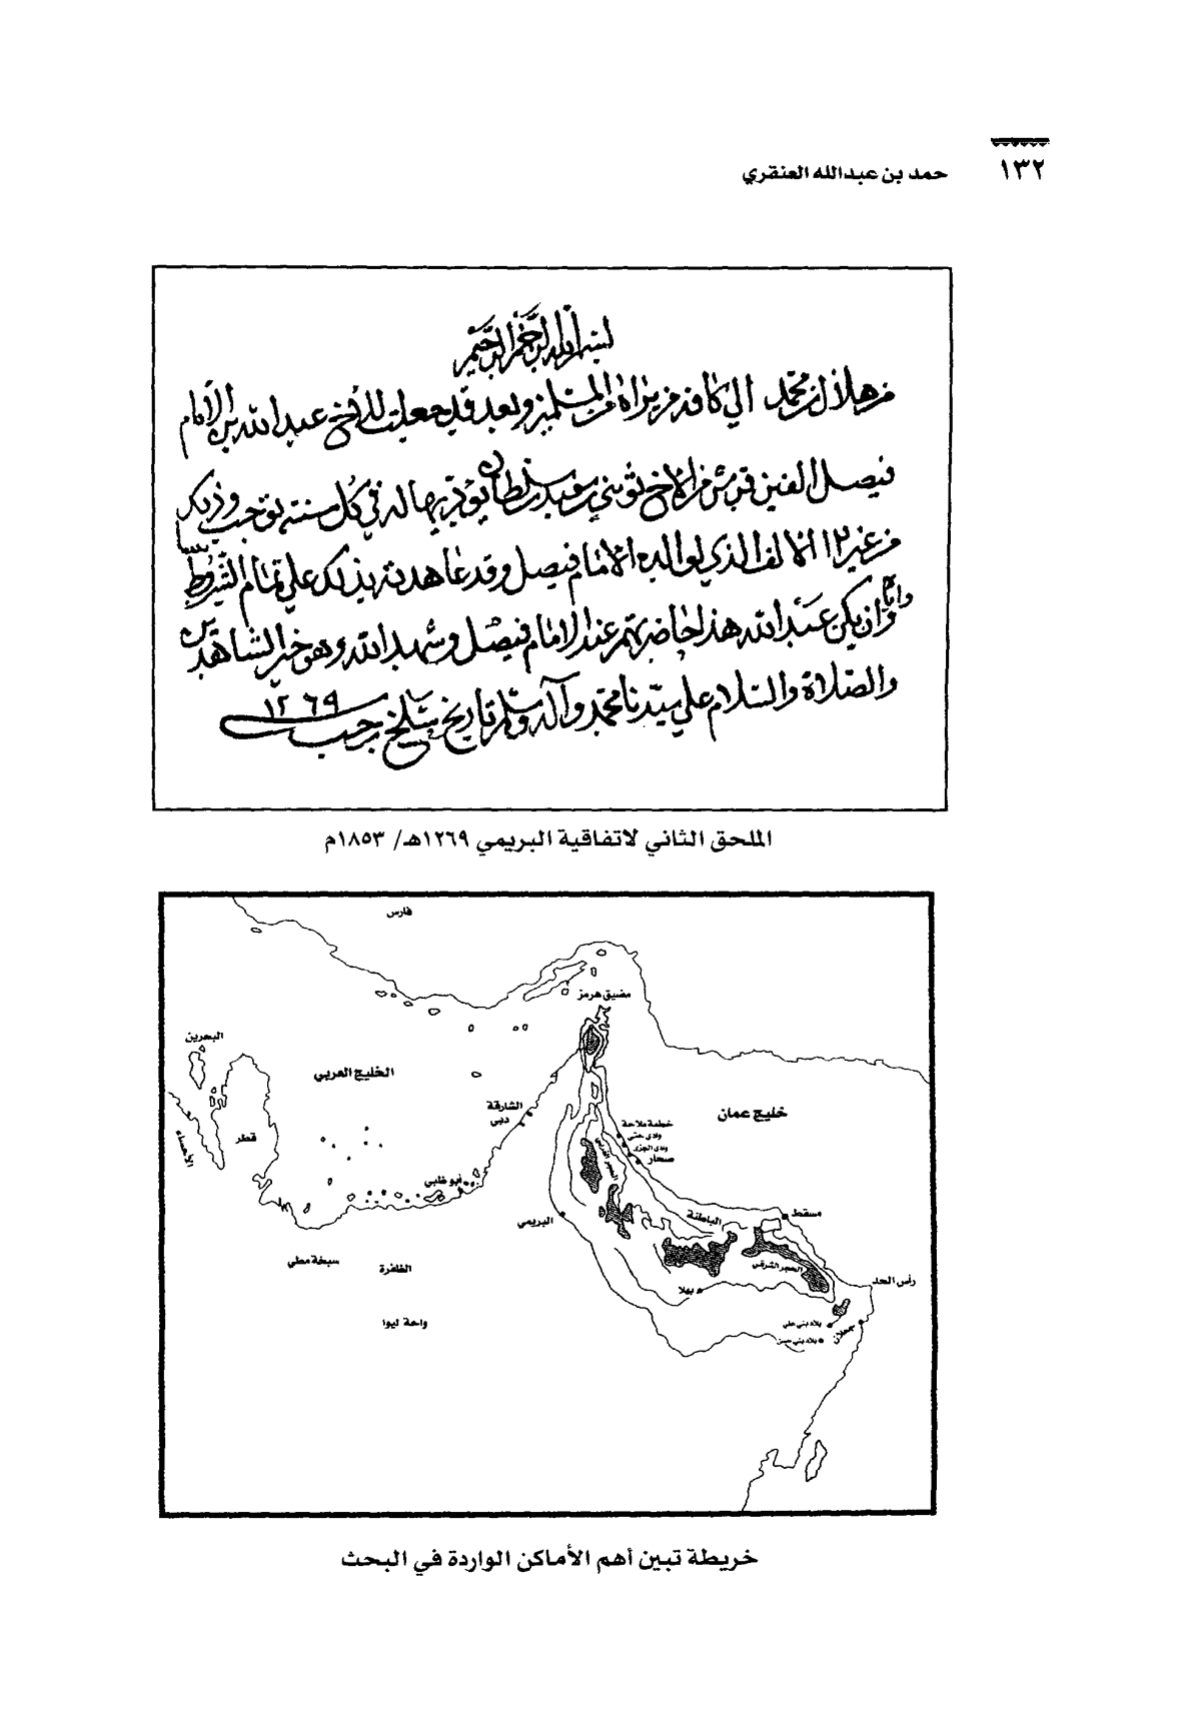 ١٣٢
حمد بن عبدالله العنقري
بسم الله الرحمن الرحيم
من هلال بن محمد الى كافة من يراه من المسلمين وبعد قد جعلت للأخ عبد الله بن الإمام
فيصل الفين قرش من الاخ ثويني بن سعيد بن سلطان يؤديها له في كل سنة توجب وذلك
من غير ١٢ الالف الذي لوالده الامام فيصل وقد عاهدته بذلك على تمام الشروط
وان يكن عبد الله هذا حاضرهم عند الامام فيصل وشهد الله وهو خير الشاهدين
والصلاة والسلام على سيدنا محمد وآله وسلم تاريخ سلخ رجب ١٢٦٩
الملحق الثاني لاتفاقية البريمي ١٢٦٩هـ/ ١٨٥٣م
فارس
مضيق هرمز
البحرين
الخليج العربي
الشارقة
دبي
خليج عمان
خطمة ملاحة
وادي حتى
وادي الجزي
صحار
قطر
الأحساء
أبو ظبي
البريمي
الباطنة
مسقط
سبخة مطي
الظفرة
الحجر الشرقي
رأس الحد
بهلا
واحة ليوا
بلاد بني علي
جعلان
بلاد بني حسن
خريطة تبين أهم الأماكن الواردة في البحث